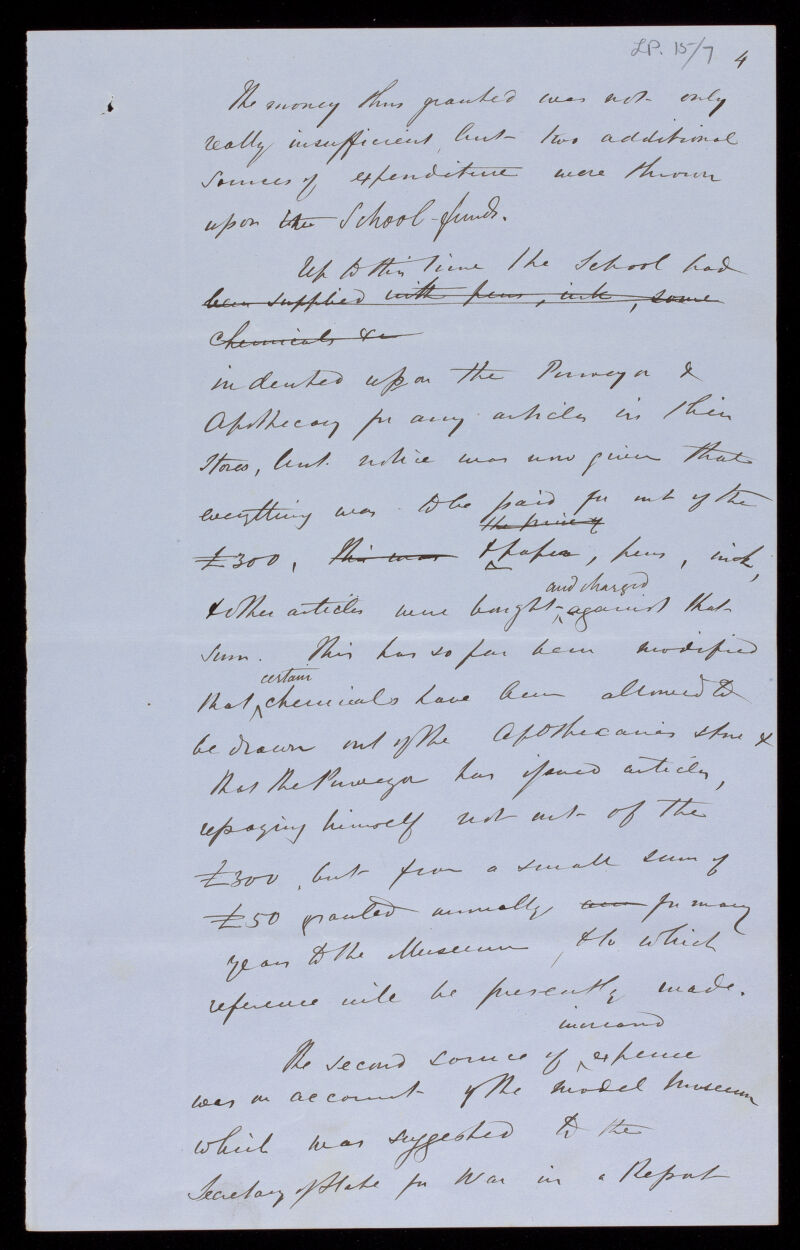 LP. 15/7 4
The money thus granted was not only
really insufficient, but two additional
sources of expenditure were thrown
upon the School-funds.
Up to this time the School had
been supplied with pens, ink, some
chemicals &c
indented upon the Purveyor &
Apothecary for any articles in their
stores, but notice was now given that
everything was to be paid for out of the
the price of
£300, this was & paper, pens, ink,
and charged
& other articles were bought against that
sum. This has so far been modified
certain
that chemicals have been allowed to
be drawn out of the Apothecaries store &
that the Purveyor has issued articles,
repaying himself not out of the
£300, but from a small sum of
£50 granted annually for many
years to the Museum, & to which
reference will be presently made.
increased
The second source of expense
was on account of the model Museum
which was suggested to the
Secretary of State for War in a Report